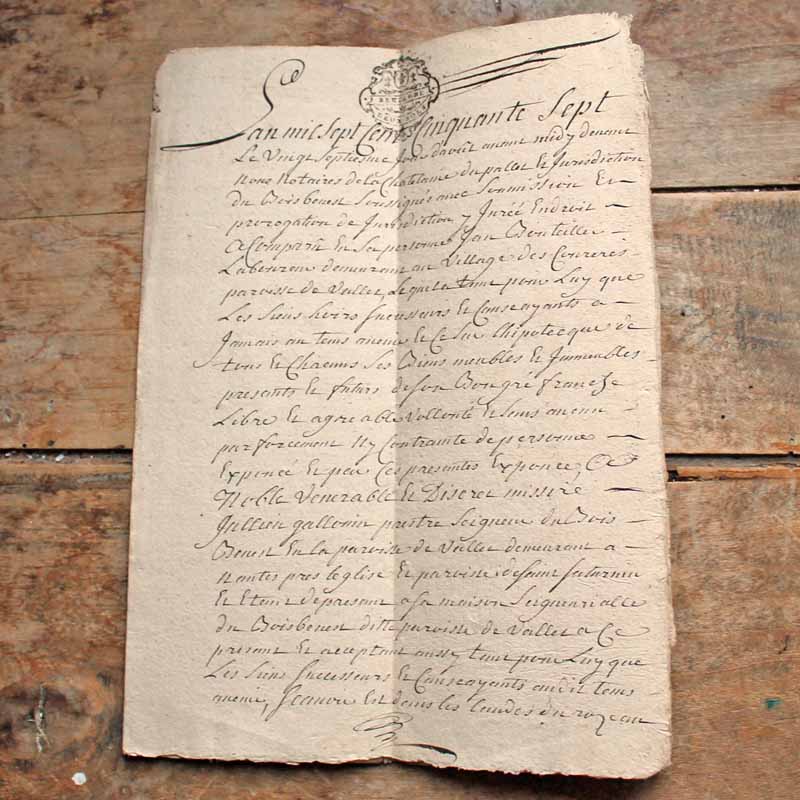 Lan mil Sept Cent Cinquante Sept
Le Vingt Septiesme Jour daoût avant midy devant
Nous Notaires de la Chatelanie du pallet Et Jurisdiction
du Boisbenest Soussignés avec Soumission Et
prorogation de Jurisdiction y Jurée Endroit
a Comparu En Sa personne Jan Bouteille
Laboureur demeurant au Village des
paroisse de Vallet, Lequel tant pour Luy que
Les Siens hoirs Successeurs Et Causeayants a
Jamais au tems avenir Et Ce Sur lhipotecque de
tous Et Chacuns Ses Biens meubles Et Jmmeubles
presents Et futurs de Son Bon gré franche
Libre Et agreable Vollonté Et Sans aucun
par forcement Ny Contrainte de personne
Exponcé Et par Ces presantes Exponce, a
Noble Venerable Et Discret missire
Jullien prestre Seigneur du Bois
Benest En la paroisse de Vallet demeurant a
Nantes pres leglise Et paroisse de Saint Saturnin
Et Etant de presant a Sa maison Seigneurialle
du Boisbenest ditte paroisse de Vallet a Ce
présent Et acceptant aussy tant pour Luy que
Les Siens Successeurs Et Causeayants audit tems
avenir, Scavoir Est dans les du